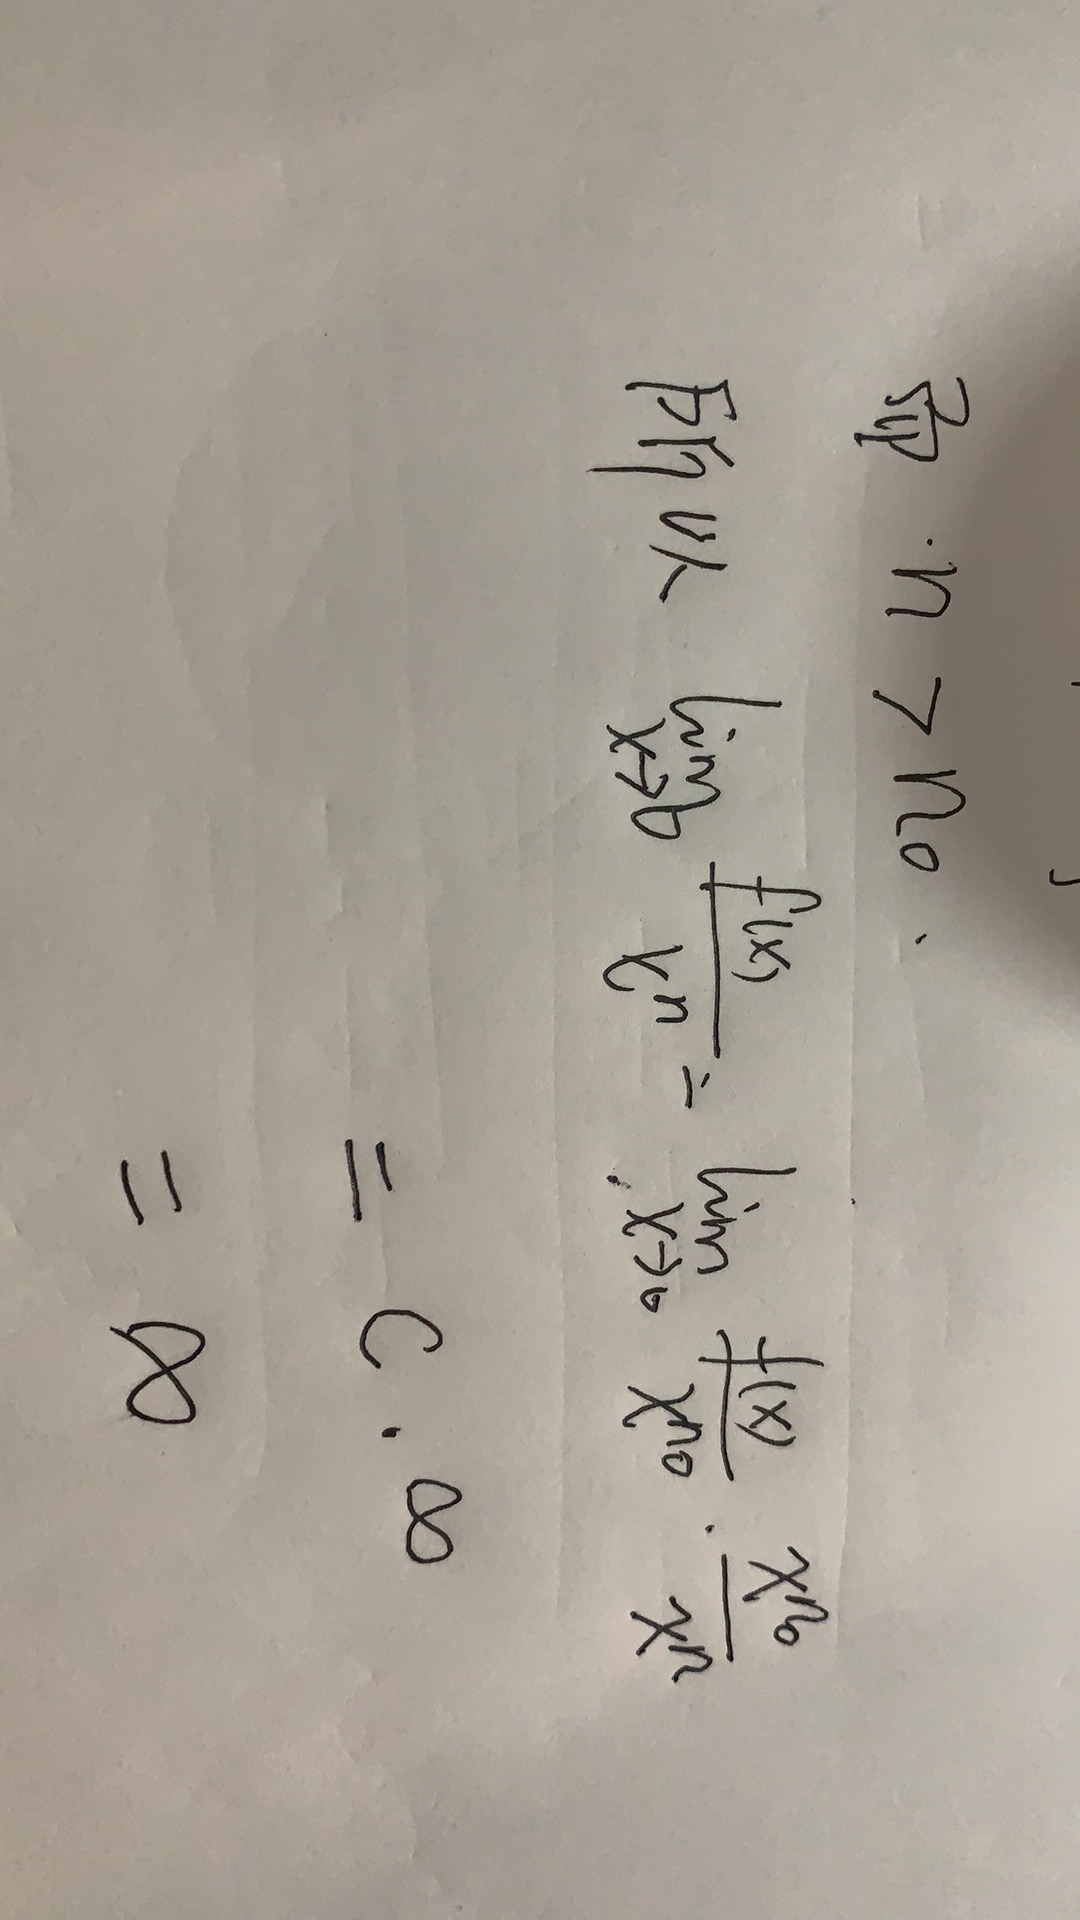 即 n > n₀.
所以 lim x→0 f(x)/xⁿ = lim x→0 f(x)/xⁿ⁰ · xⁿ⁰/xⁿ
= C · ∞
= ∞